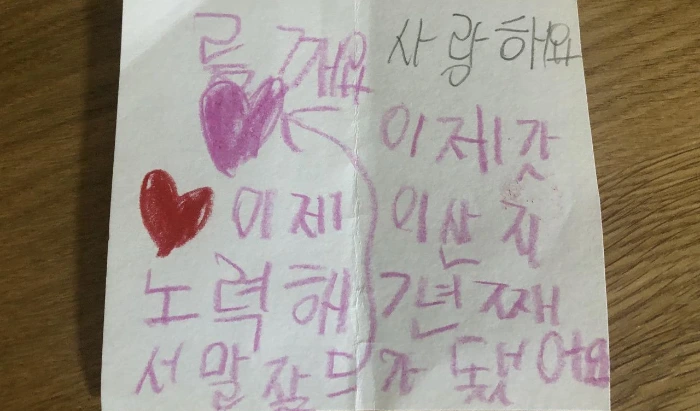 를깨요
이제
노력해
서 말 잘 드
사랑해요
이제 같
이 산 지
7년 째
가 됐어요